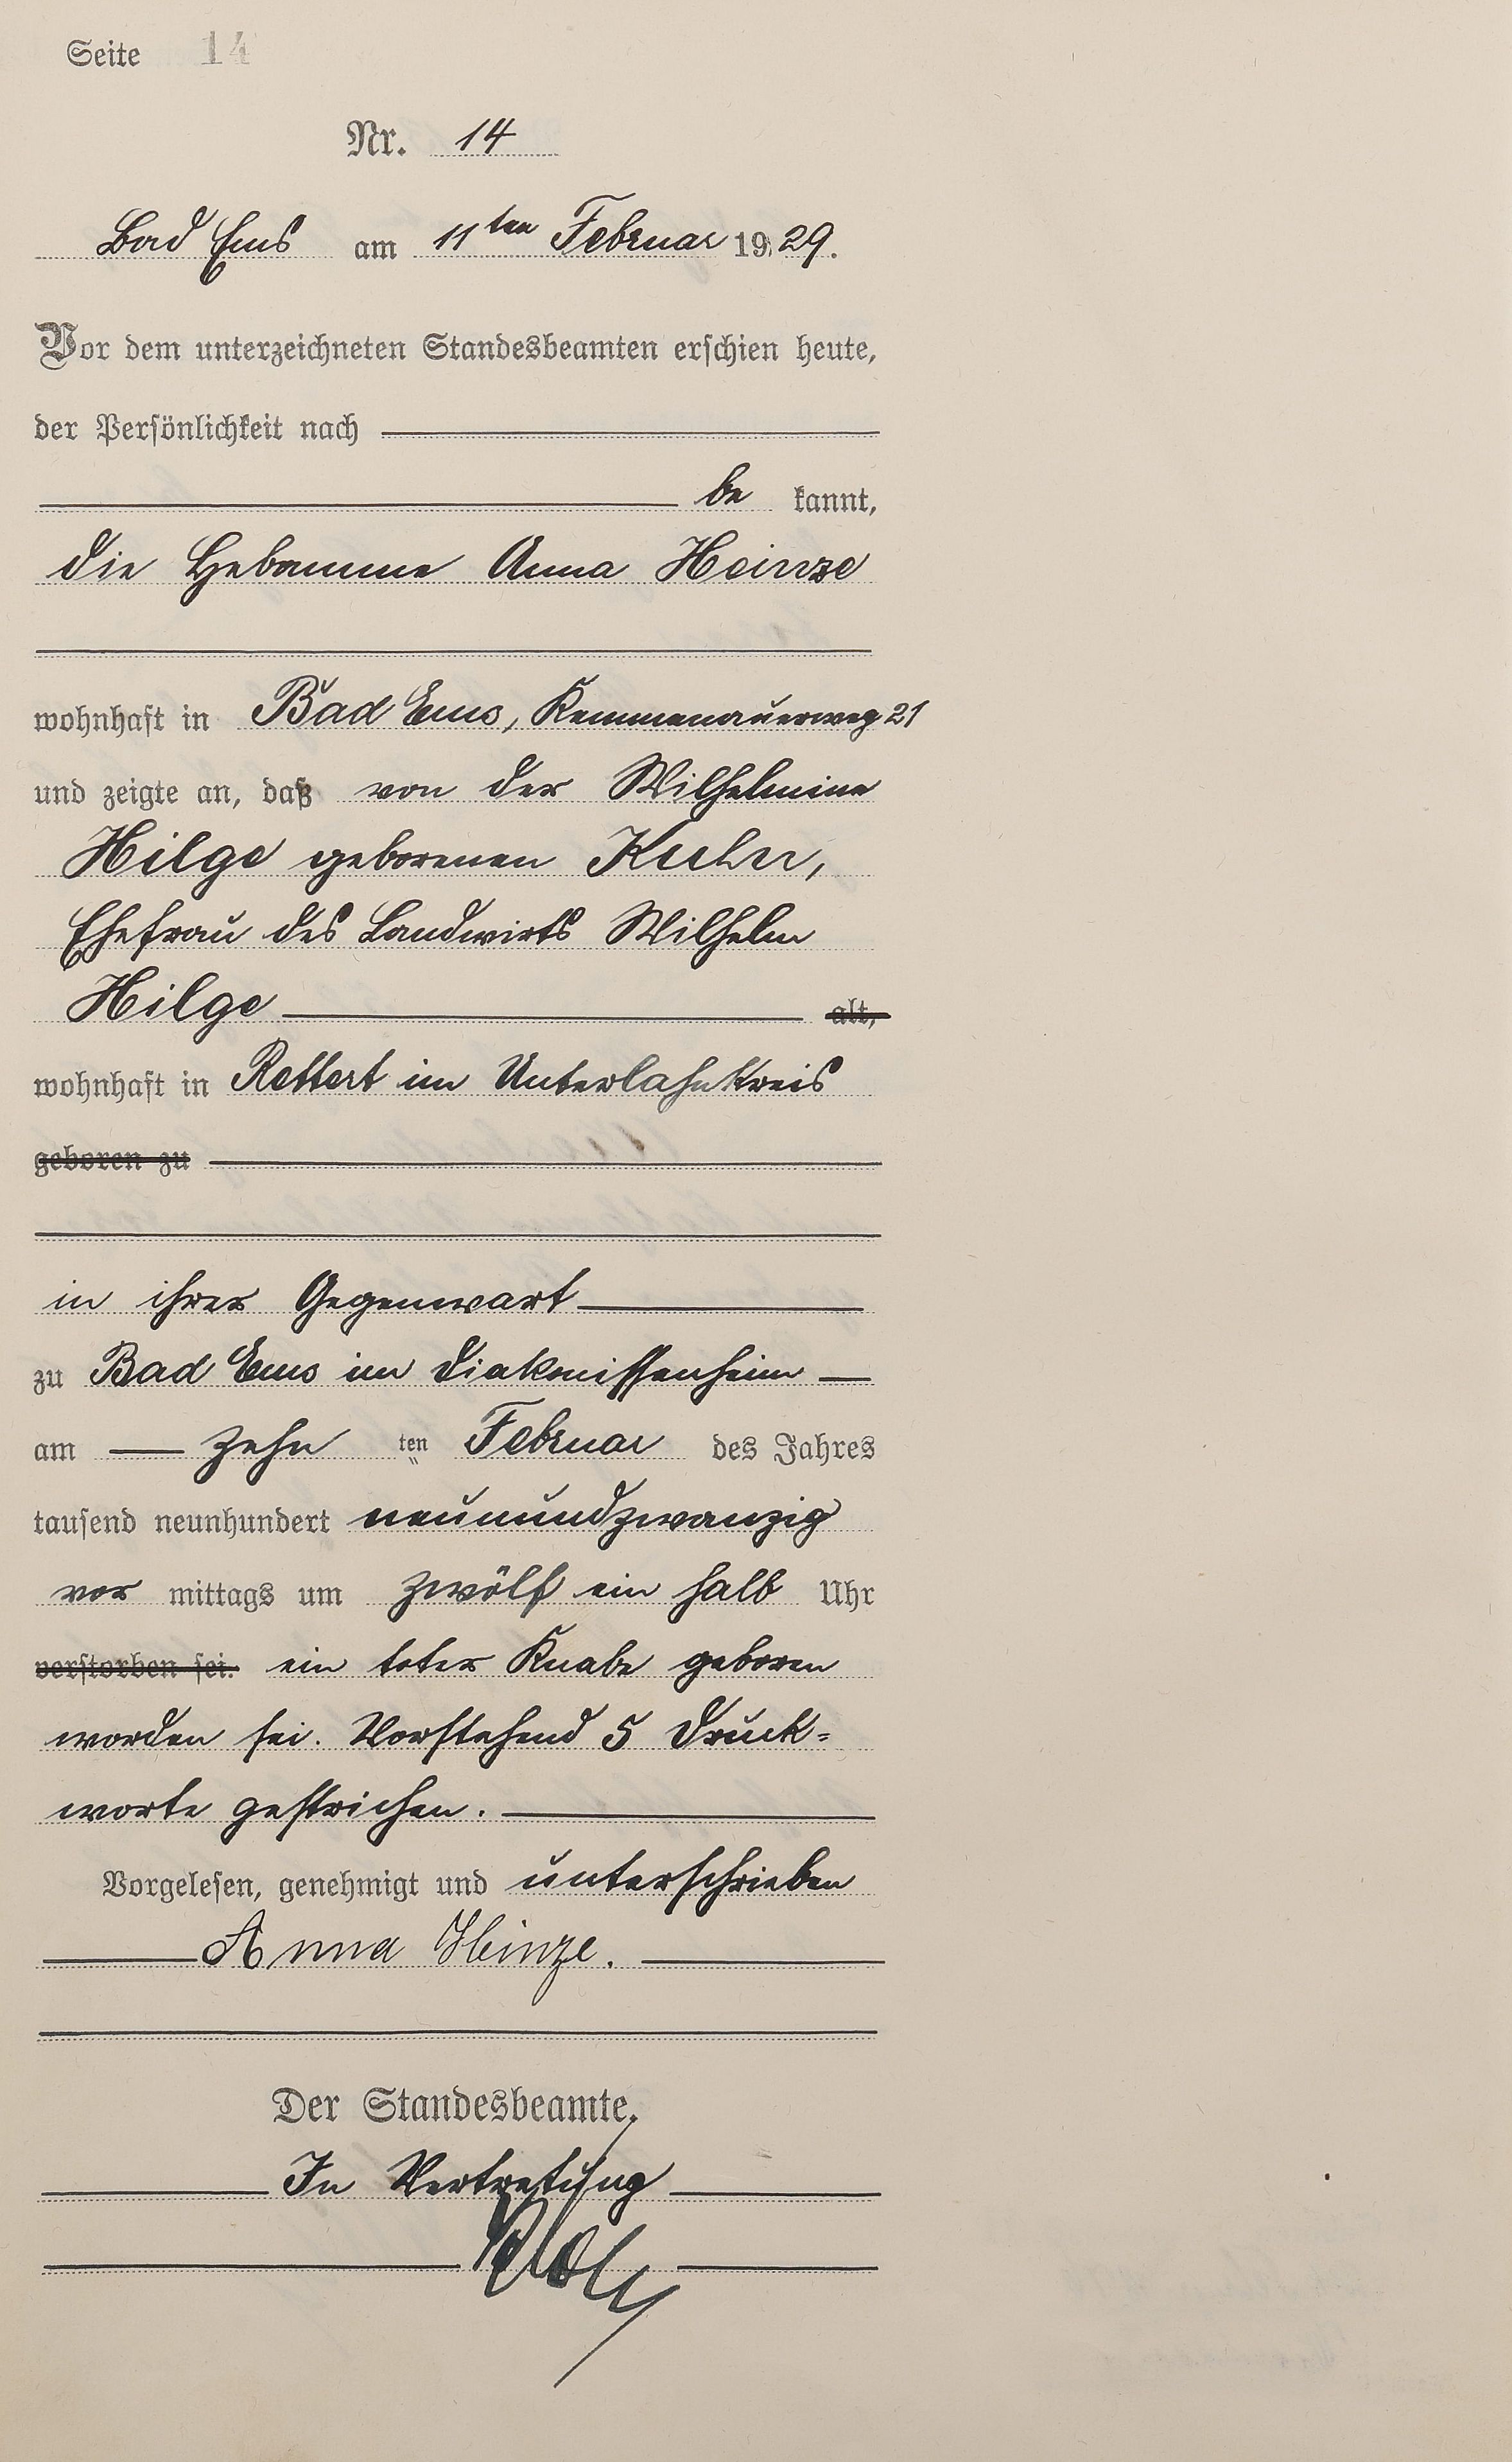 Seite 14
Nr. 14
Bad Ems am 11ten Februar 1929.
Vor dem unterzeichneten Standesbeamten erschien heute,
der Persönlichkeit nach
be kannt,
die Hebamme Anna Heinze
wohnhaft in Bad Ems, Kemmenauerweg 21
und zeigte an, daß von der Wilhelmine
Hilge geborenen Kuhn,
Ehefrau des Landwirts Wilhelm
Hilge alt,
wohnhaft in Rettert im Unterlahnkreis
geboren zu
in ihrer Gegenwart
zu Bad Ems im Diakonissenheim
am zehn ten Februar des Jahres
tausend neunhundert neunundzwanzig
vor mittags um zwölf ein halb Uhr
verstorben sei. ein toter Knabe geboren
worden sei. Vorstehend 5 Druck=
worte gestrichen.
Vorgelesen, genehmigt und unterschrieben
Anna Heinze.
Der Standesbeamte.
In Vertretung